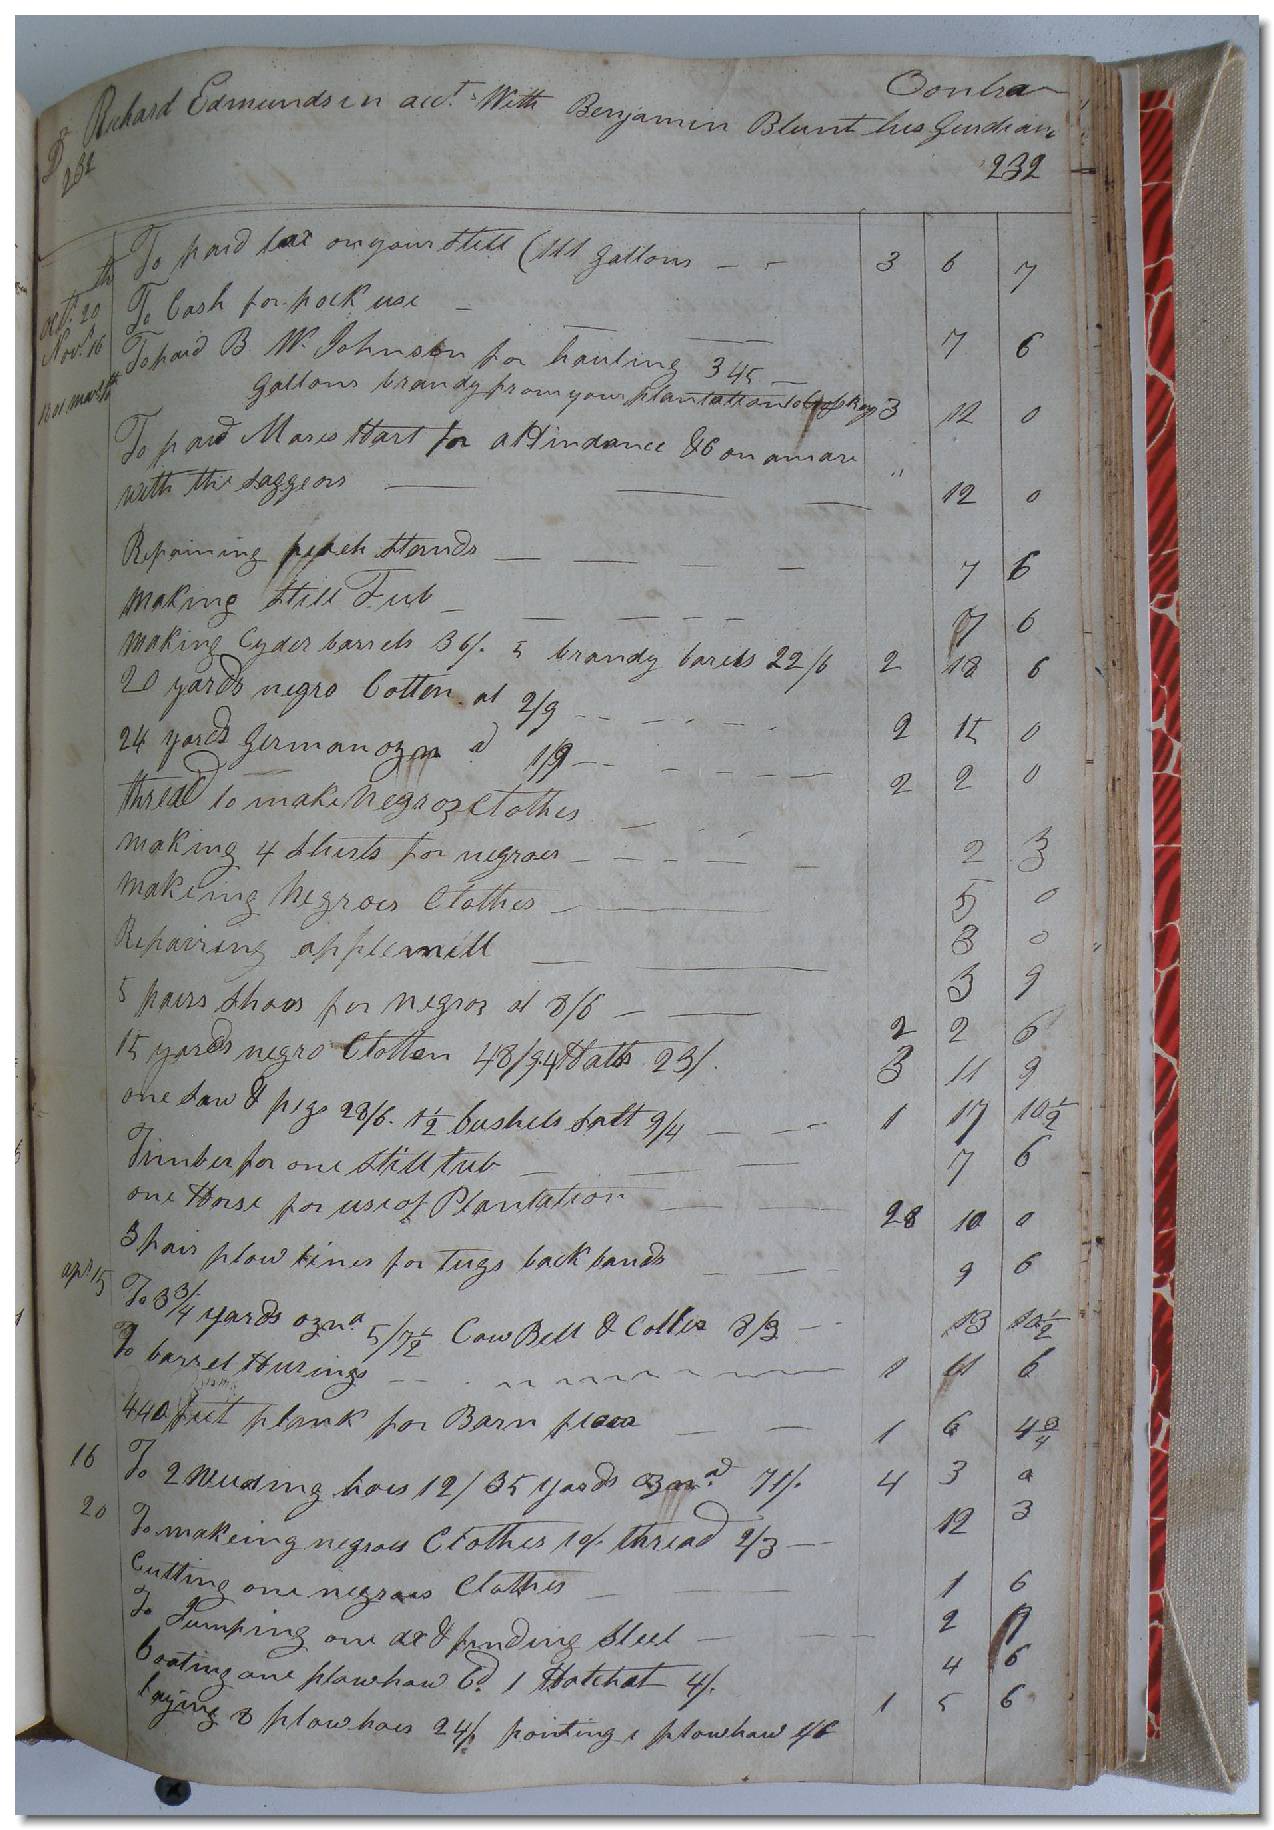 Contra
Dr Richard Edmunds in acct. With Benjamin Blunt his Gardian
232 232
To paid tax on your Still (111 gallons 3 6 7
Octr. 20th To Cash for pock use 7 6
Novr. 16 To paid B W. Johnson for hauling 345
gallons brandy from your plantation 3 12 0
To paid Moses Hart for attindance &c on a mare
with the Saggeors " 12 0
Repairing Stands 7 6
Making Still Tub 7 6
Making Cyder barrels 36/. 5 brandy barels 22/6 2 18 6
20 yards negro Cotten at 2/9 2 15 0
24 yards German ozn a 1/9 2 2 0
thread to make Negros Clothes 2 3
Making 4 Shirts for negroes 5 0
Makeing Negroes Clothes 3 0
Repairing applemill 3 9
5 pairs Shoos for Negros at 8/6 2 2 6
15 yards negro Cotten 48/9. 4 Hatts 23/. 3 11 9
one Saw & pigs 28/6. 1½ bushels Salt 9/4 1 17 10½
Timber for one Still tub 7 6
one Horse for use of Plantation 28 10 0
3 pair plow lines for Tugs back bands 9 6
apr 15 To 3¾ yards ozna. 5/7½ Cow Bell & Coller 8/3 13 10½
To barrel Hurings 1 11 6
440 feet plank for Barn 1 6 4¾
16 To 2 Weeding hoes 12/ 35 yards oznad. 71/. 4 3 0
20 To makeing negroes Clothes 10/. thread 2/3 12 3
Cutting one negroes Clothes 1 6
To Jumping one ax & finding Steel 2 7
booting one plowhaw 6d. 1 Hatchet 4/. 4 6
laying 8 plowhoes 24/. pointing 1 plowhaw 1/6 1 5 6